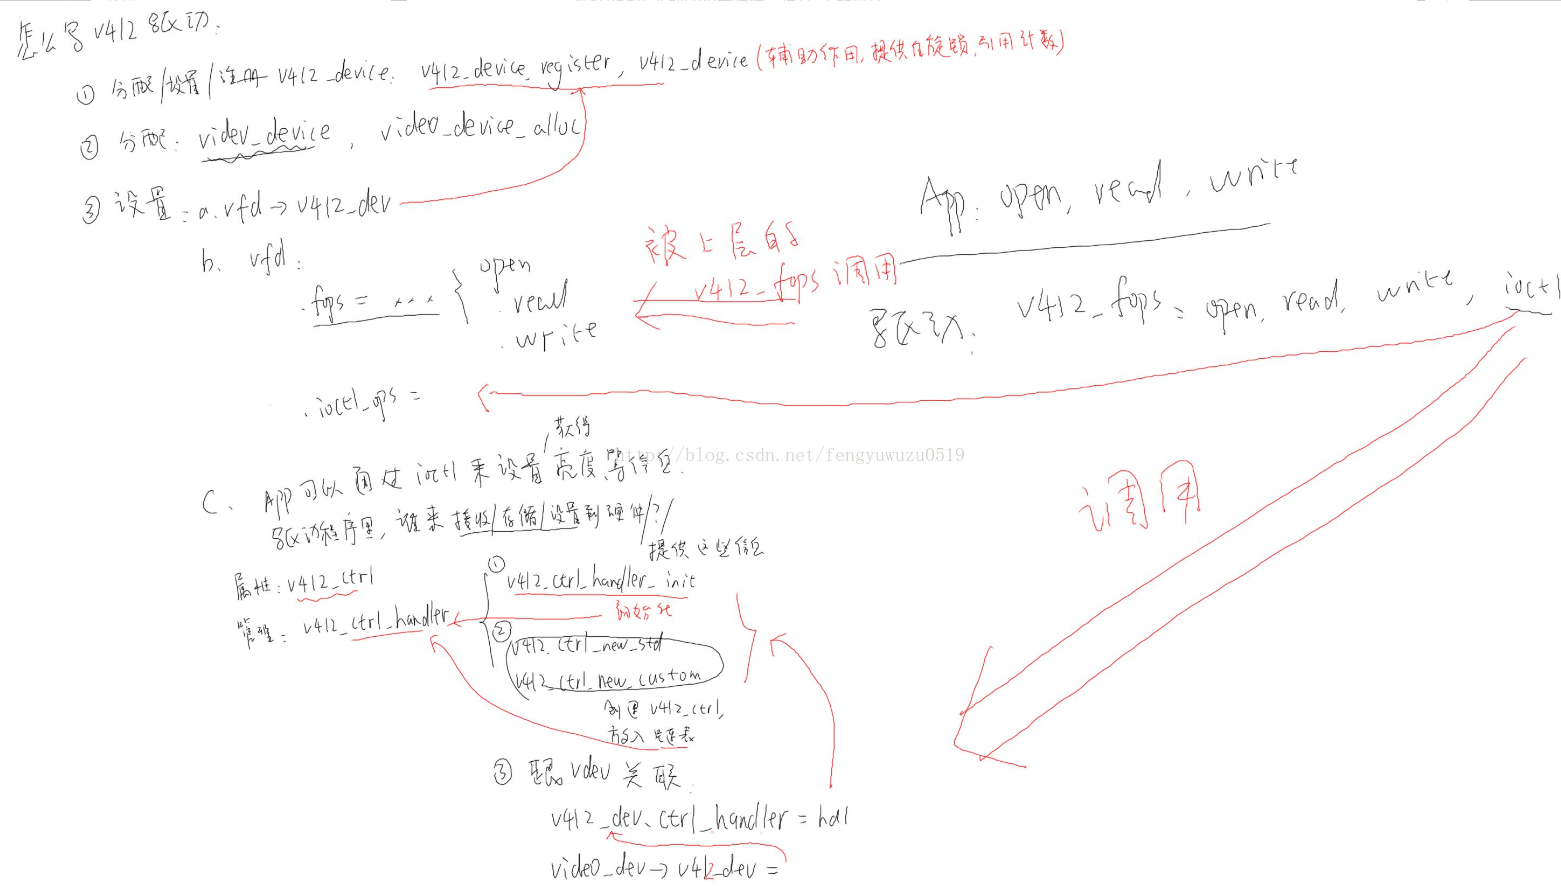 怎么写v4l2驱动:
① 分配/设置/注册 v4l2_device: v4l2_device_register, v4l2_device (辅助作用, 提供自旋锁, 引用计数)
② 分配: videv_device, video_device_alloc
③ 设置: a. vfd→v4l2_dev
b. vfd:
.fops = ... { open
. read
. write
.ioctl_ops =
被上层的
v4l2_fops 调用
App: open, read, write
驱动: v4l2_fops = open, read, write, ioctl
调用
http://blog.csdn.net/fengyuwuzu0519
获得
C. App可以通过ioctl来设置亮度等信息.
驱动程序里, 谁来接收/存储/设置到硬件/?/
提供这些信息
属性: v4l2_ctrl
管理: v4l2_ctrl_handler
① v4l2_ctrl_handler_init
初始化
② v4l2_ctrl_new_std
v4l2_ctrl_new_custom
创建v4l2_ctrl,
放入链表
③ 跟vdev关联.
v4l2_dev.ctrl_handler = hdl
video_dev→v4l2_dev =